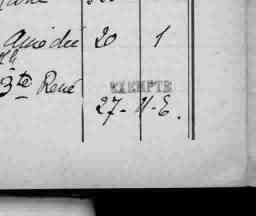 Amédée 20 1
3te René EXEMPTE
27-11-E.